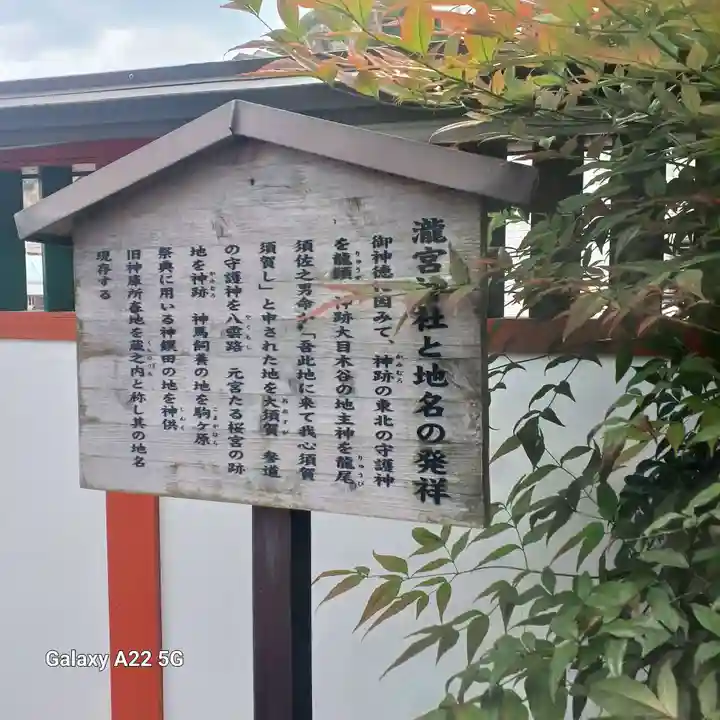 瀧宮神社と地名の発祥
御神徳に因みて、神跡の東北の守護神
を龍頭 神跡大目木谷の地主神を龍尾
須佐之男命が「吾此地に来て我心須賀
須賀し」と申された地を大須賀 参道
の守護神を八雲路 元宮たる桜宮の跡
地を神跡 神馬飼養の地を駒ヶ原
祭典に用いる神饌田の地を神供
旧神庫所在地を蔵之内と称し其の地名
現存する
Galaxy A22 5G